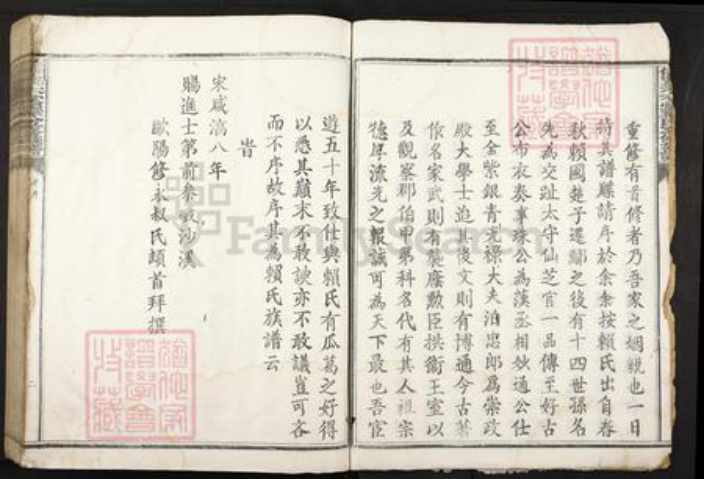 重修有首修者乃吾家之姻親也一日
持其譜牒請序於余余按賴氏出自春
秋賴國楚子遷鄢之後有十四世孫名
先為交趾太守仙芝官一品傳至好古
公布衣奏事珠公為漢丞相妙通公仕
至金紫銀青光祿大夫洎忠郎為崇政
殿大學士迨其後文則有博通今古業
作名家武則有襲廕勲臣拱衛王室以
及觀察郡伯甲第科名代有其人祖宗
德厚流光之報誠可為天下最也吾宦
遊五十年致仕與賴氏有瓜葛之好得
以悉其巔末不敢諛亦不敢議豈可吝
而不序故序其為賴氏族譜云
旹
宋咸淳八年
賜進士第前叅
歐陽修永叔氏頓首拜撰
FamilySearch